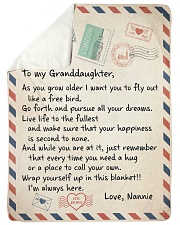 To my Granddaughter,
As you grow older I want you to fly out
like a free bird,
Go forth and pursue all your dreams.
Live life to the fullest
and make sure that your happiness
is second to none.
And while you are at it, just remember
that every time you need a hug
or a place to call your own.
Wrap yourself up in this blanket!!
I'm always here.
Love, Nannie